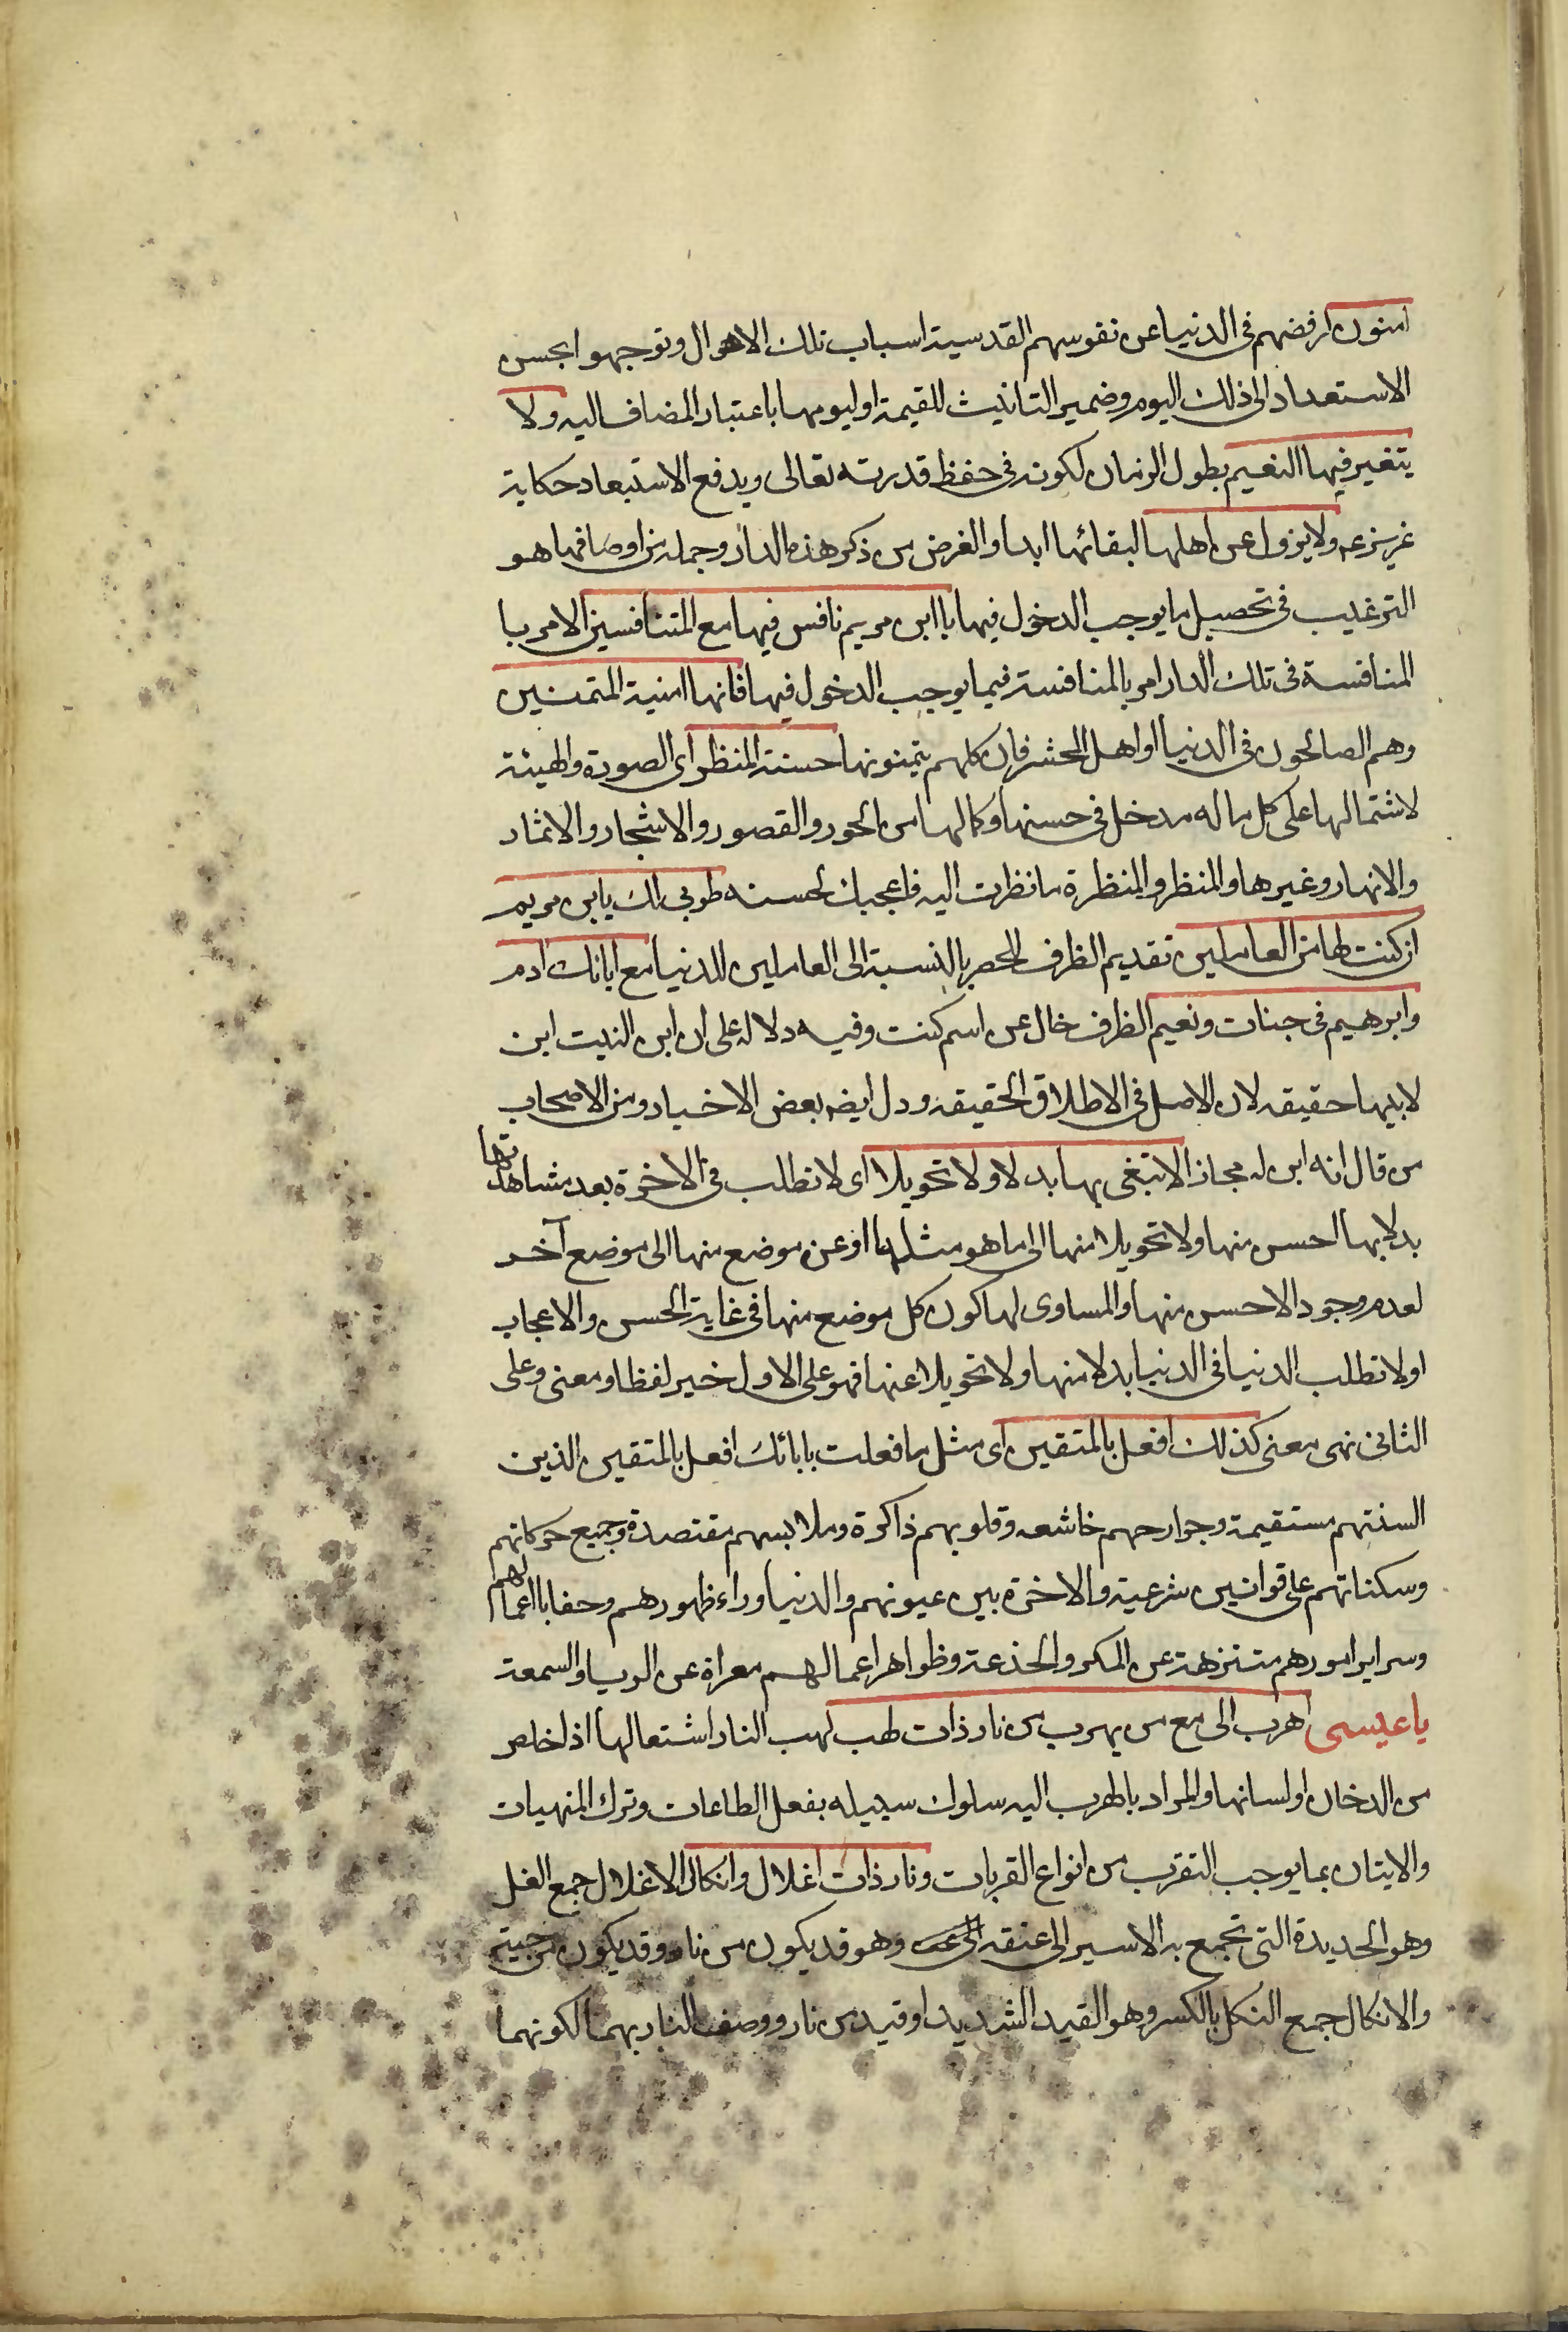 امنون لرفضهم فى الدنيا عن نفوسهم القدسية اسباب تلك الاهوال وتوجهوا بحسن
الاستعداد الى ذلك اليوم وضمير التانيث للقيمة او ليومها باعتبار المضاف اليه ولا
يتغير فيها النعيم بطول الزمان لكونه فى حفظ قدرته تعالى ويدفع الاستبعاد حكاية
عزير ولا يزول عن اهلها لبقائها ابدا والغرض من ذكر هذه الدار وجملة من اوصافها هو
الترغيب فى تحصيل ما يوجب الدخول فيها يا ابن مريم نافس فيها مع المتنافسين الامر با
المنافسة فى تلك الدار امر بالمنافسة فيما يوجب الدخول فيها فانها امنية المتمنين
وهم الصالحون فى الدنيا او اهل الحشر فان كلهم يتمنونها حسنة المنظر اى الصورة والهيئة
لاشتمالها على كل ما له مدخل فى حسنها وكمالها من الحور والقصور والاشجار والاثمار
والانهار وغيرها والمنظر والمنظرة ما نظرت اليه فاعجبك لحسنه طوبى لك يا بن مريم
ان كنت لها من العاملين تقديم الظرف للحصر بالنسبة الى العاملين للدنيا مع ابائك ادم
وابرهيم فى جنات ونعيم الظرف حال عن اسم كنت وفيه دلالة على ان ابن البنت ابن
لابيها حقيقه لان الاصل فى الاطلاق الحقيقه ودل ايضه بعض الاخبار ومن الاصحاب
من قال انه ابن له مجاز الا تبغى بها بدلا ولا تحويلا اى لا تطلب فى الاخرة بعد مشاهدتها
بدلا بها احسن منها ولا تحويلا منها الى ما هو مثلها او عن موضع منها الى موضع آخر
لعدم وجود الاحسن منها والمساوى لها كون كل موضع منها فى غاية الحسن والاعجاب
او لا تطلب الدنيا فى الدنيا بدلا منها ولا تحويلا عنها فهو على الاول خبر لفظا ومعنى وعلى
الثانى نهى معنى كذلك افعل بالمتقين اى مثل ما فعلت بابائك افعل بالمتقين الذين
السنتهم مستقيمة وجوارحهم خاشعه وقلوبهم ذاكرة وملابسهم مقتصدة وجميع حركاتهم
وسكناتهم على قوانين شرعية والاخرة بين عيونهم والدنيا وراء ظهورهم وخفايا اعمالهم
وسراير امورهم متنزهة عن المكر والخدعة وظواهر اعمالهم معراة عن الريا والسمعة
يا عيسى اهرب الى مع من يهرب من نار ذات لهب لهب النار اشتعالها اذا خلص
من الدخان او لسانها والمراد بالهرب اليه سلوك سبيله بفعل الطاعات وترك المنهيات
والايتان بما يوجب التقرب من انواع القربات ونار ذات اغلال وانكال الاغلال جمع الغل
وهو الحديدة التى تجمع يد الاسير الى عنقه وهو قد يكون من نار وقد يكون من
والانكال جمع النكل بالكسر وهو القيد الشديد او قيد من نار ووصف النار بهما لكونهما